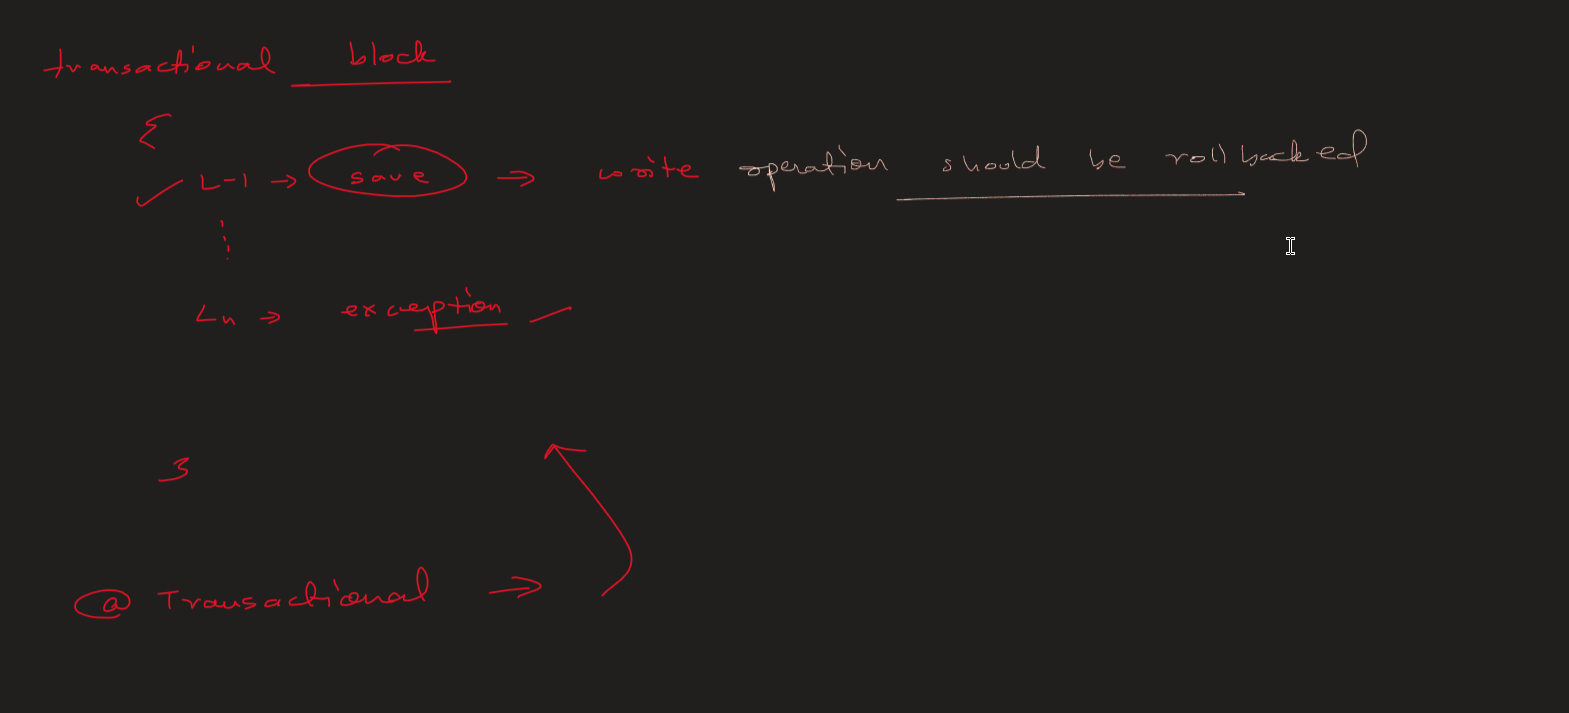 transactional block
{
L-1 → save → write operation should be rollbacked
Ln → exception
}
@Transactional →